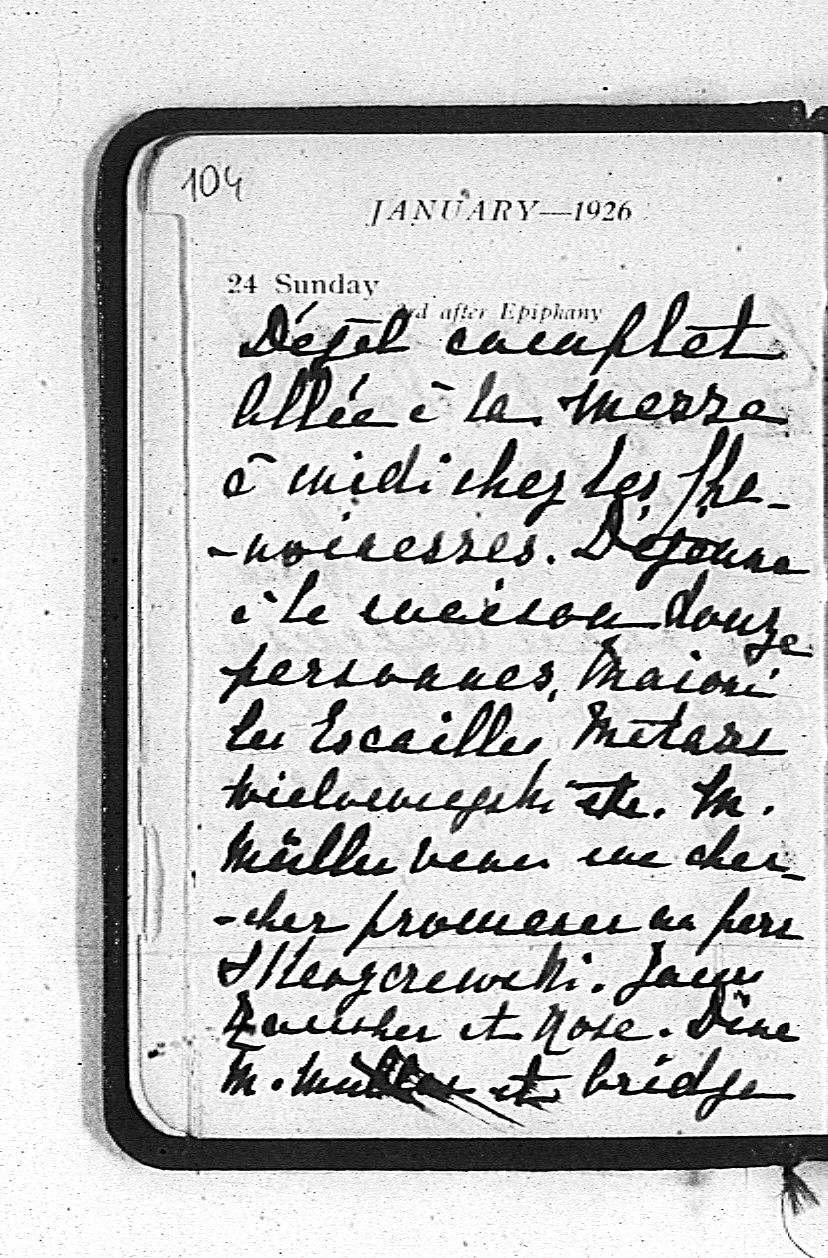 104
JANUARY—1926
24 Sunday
3rd after Epiphany
Dégel complet
Allée à la messe
à midi chez les
-noinesses. Déjeune
à la maison douze
personnes,
les Escailles,
Wielowieyski etc. M.
Müller venu me cher-
-cher promener au parc
Skaryszewski.
et Rose. Dîne
M. Müller et bridge